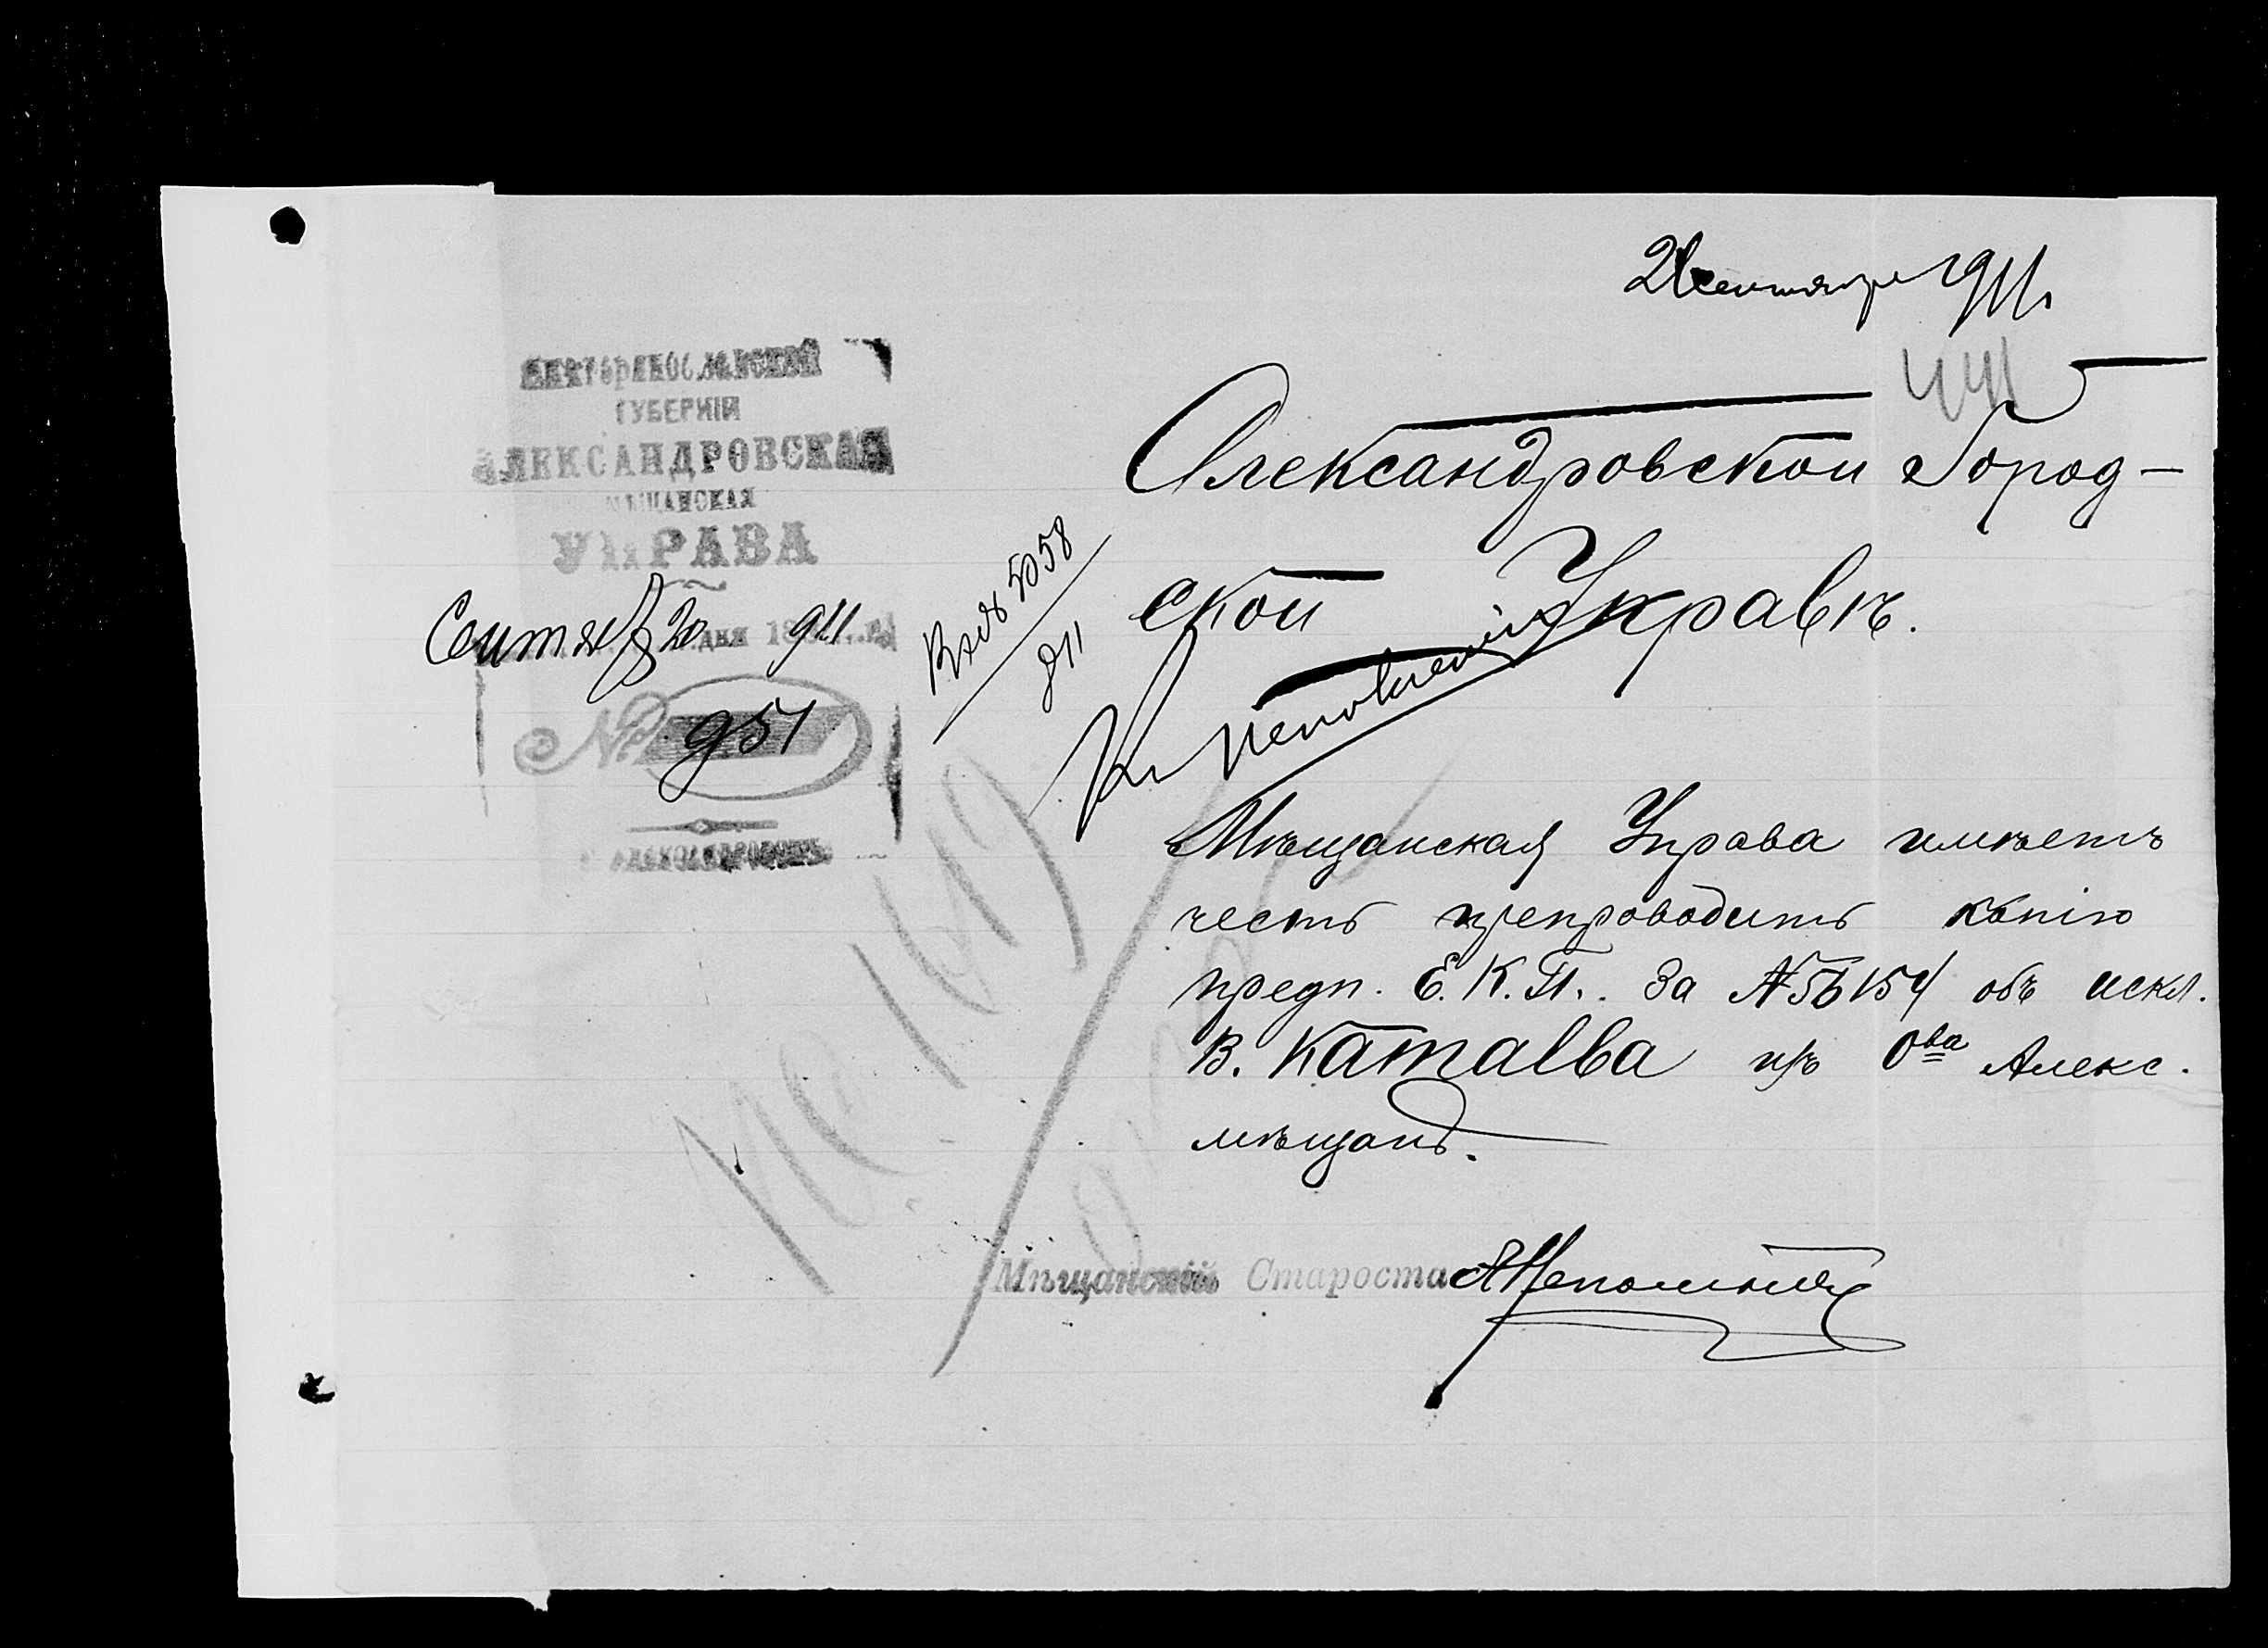 21 сентября 1911
441
ЕКАТЕРИНОСЛАВСКОЙ
ГУБЕРНІИ
АЛЕКСАНДРОВСКАЯ
МѢЩАНСКАЯ
УПРАВА
Сентяб 20 дня 1911 г.
№ 951
Г. АЛЕКСАНДРОВСКЪ
Вход 5058
911
Александровской Город-
ской Управѣ.
Къ исполненію
Мѣщанская Управа имѣетъ
честь препроводить копію
предп. Е. К. П. за № 5б154 объ искл.
В. Катаева изъ О-ва Алекс.
мѣщанъ.
Мѣщанскій Староста